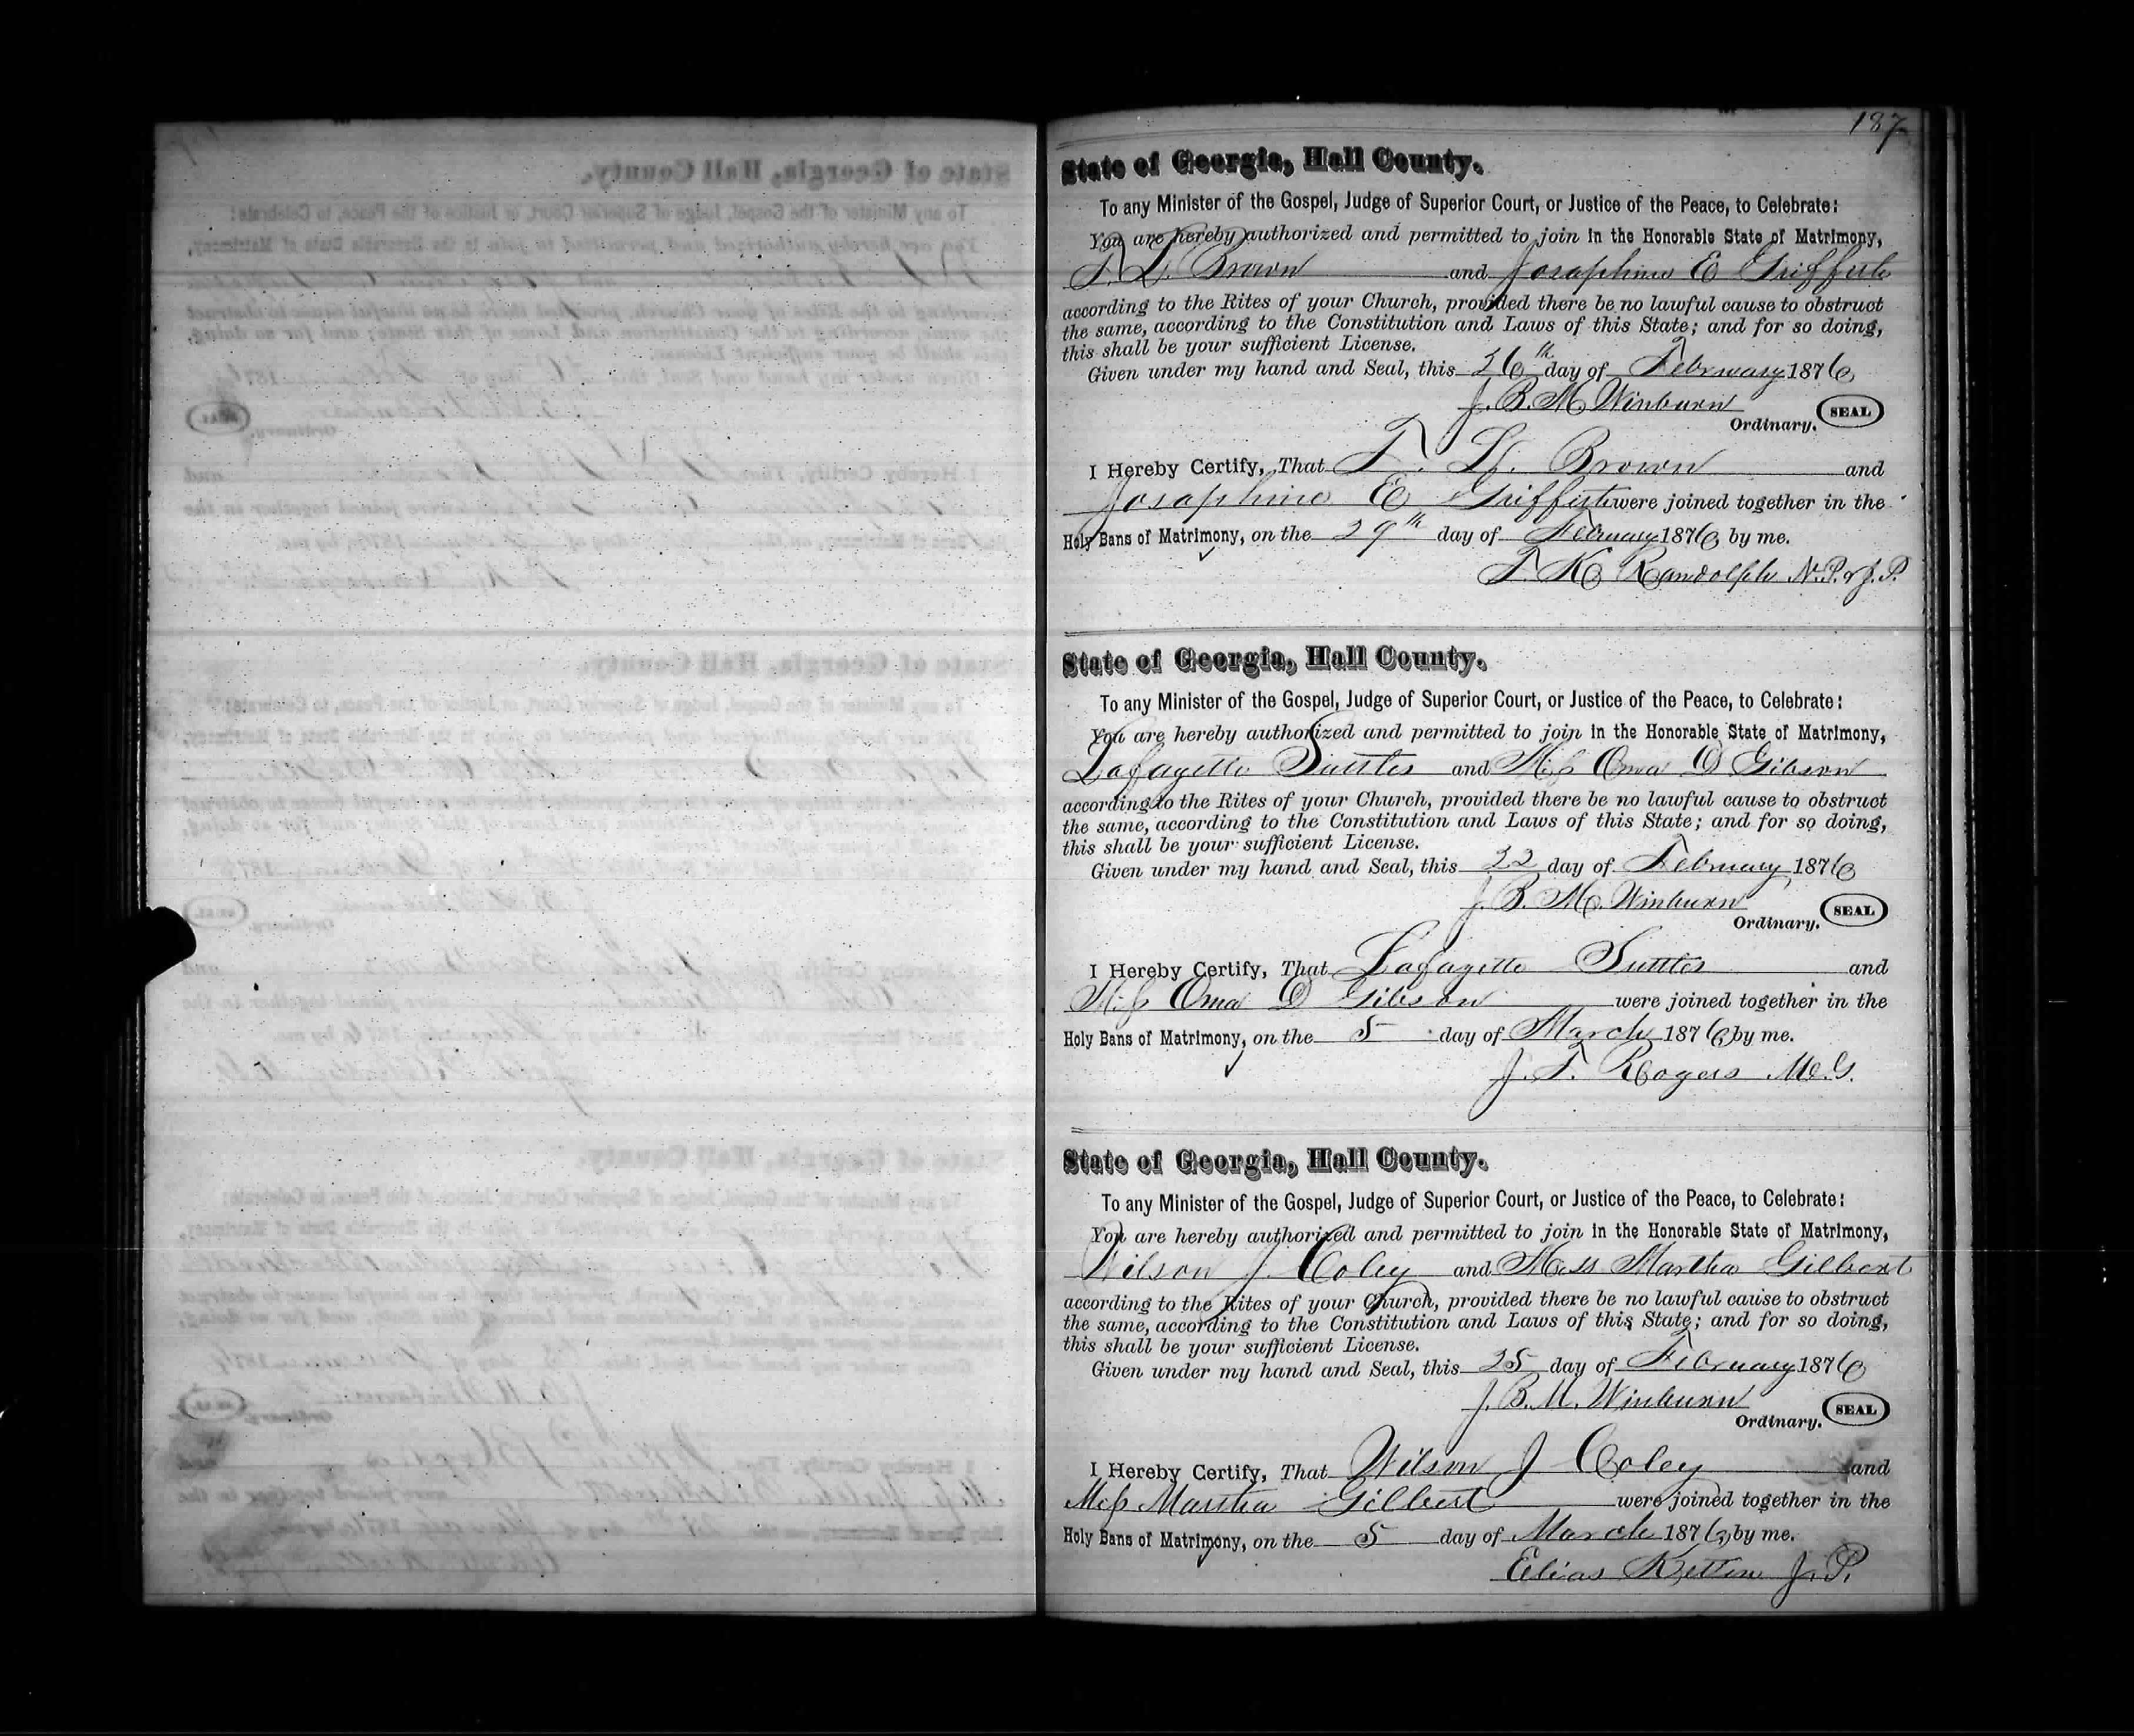 187
State of Georgia, Hall County.
To any Minister of the Gospel, Judge of Superior Court, or Justice of the Peace, to Celebrate:
You are hereby authorized and permitted to join in the Honorable State of Matrimony,
Brown and Josaphine E Griffith
according to the Rites of your Church, provided there be no lawful cause to obstruct
the same, according to the Constitution and Laws of this State; and for so doing,
this shall be your sufficient License.
Given under my hand and Seal, this 26th day of February 1876
J. B. M. Winburn
Ordinary. SEAL
I Hereby Certify, That Brown and
Josaphine E Griffith were joined together in the
Holy Bans of Matrimony, on the 29th day of February 1876 by me.
Randolph N.P. & J.P.
State of Georgia, Hall County.
To any Minister of the Gospel, Judge of Superior Court, or Justice of the Peace, to Celebrate:
You are hereby authorized and permitted to join in the Honorable State of Matrimony,
Lafayette Suttles and Miss Oma D Gibson
according to the Rites of your Church, provided there be no lawful cause to obstruct
the same, according to the Constitution and Laws of this State; and for so doing,
this shall be your sufficient License.
Given under my hand and Seal, this 22 day of February, 1876
J. B. M. Winburn
Ordinary. SEAL
I Hereby Certify, That Lafayette Suttles and
Miss Oma D Gibson were joined together in the
Holy Bans of Matrimony, on the 5 day of March 1876 by me.
J. F. Rogers M.G.
State of Georgia, Hall County.
To any Minister of the Gospel, Judge of Superior Court, or Justice of the Peace, to Celebrate:
You are hereby authorized and permitted to join in the Honorable State of Matrimony,
Wilson J Coley and Miss Martha Gilbert
according to the Rites of your Church, provided there be no lawful cause to obstruct
the same, according to the Constitution and Laws of this State; and for so doing,
this shall be your sufficient License.
Given under my hand and Seal, this 25 day of February 1876
J. B. M. Winburn
Ordinary. SEAL
I Hereby Certify, That Wilson J Coley and
Miss Martha Gilbert were joined together in the
Holy Bans of Matrimony, on the 5 day of March 1876 by me.
Elias J. P.